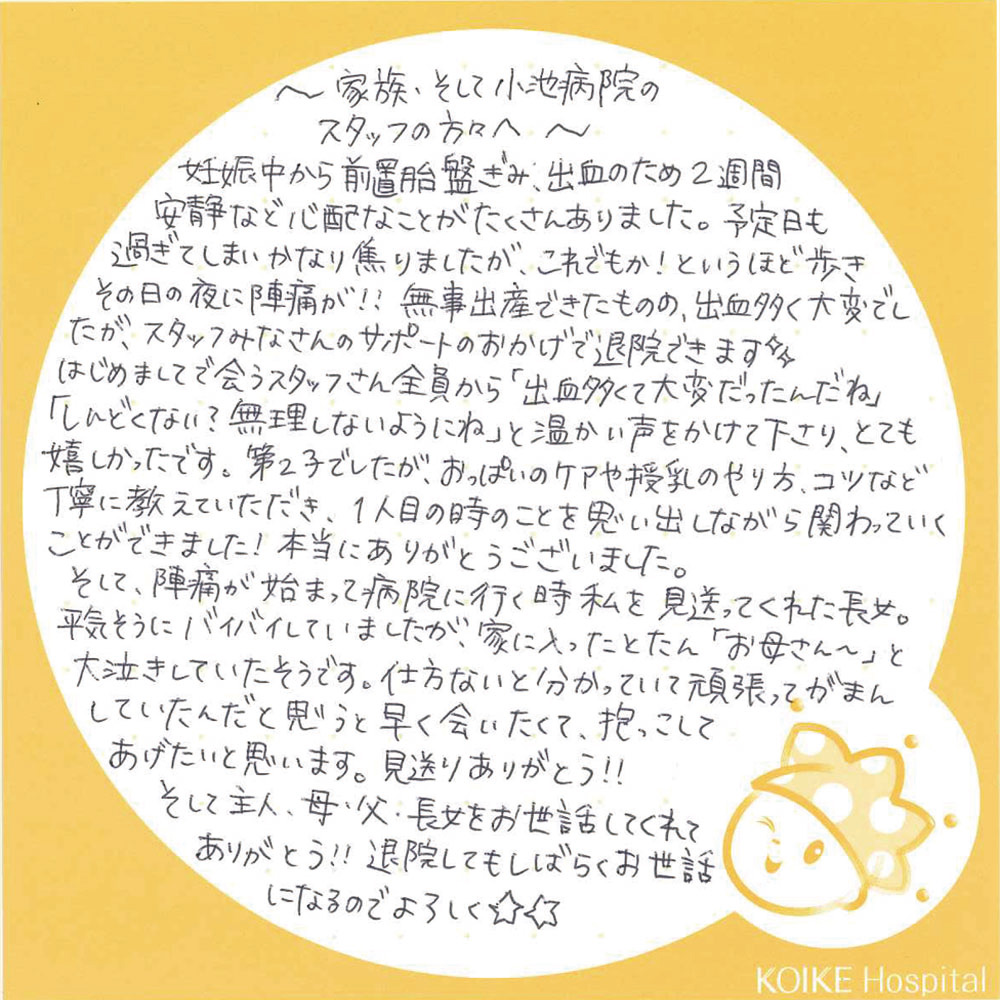 ～ 家族、そして小池病院の
スタッフの方々へ ～
妊娠中から前置胎盤ぎみ、出血のため2週間
安静など心配なことがたくさんありました。予定日も
過ぎてしまいかなり焦りましたが、これでもか！というほど歩き
その日の夜に陣痛が!! 無事出産できたものの、出血多く大変でし
たが、スタッフみなさんのサポートのおかげで退院できます☆☆
はじめましてで会うスタッフさん全員から「出血多くて大変だったんだね」
「しんどくない？無理しないようにね」と温かい声をかけて下さり、とても
嬉しかったです。第2子でしたが、おっぱいのケアや授乳のやり方、コツなど
丁寧に教えていただき、1人目の時のことを思い出しながら関わっていく
ことができました！本当にありがとうございました。
そして、陣痛が始まって病院に行く時私を見送ってくれた長女。
平気そうにバイバイしていましたが、家に入ったとたん「お母さん～」と
大泣きしていたそうです。仕方ないと分かっていて頑張ってがまん
していたんだと思うと早く会いたくて、抱っこして
あげたいと思います。見送りありがとう!!
そして主人、母・父・長女をお世話してくれて
ありがとう!! 退院してもしばらくお世話
になるのでよろしく☆☆
KOIKE Hospital